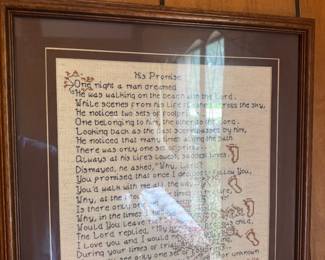 His Promise
One night a man dreamed
He was walking on the beach with the Lord.
While scenes from his life flashed across the sky,
He noticed two sets of footprints
One belonging to him, the other to the Lord.
Looking back as the last scene passed by him,
He noticed that many times along the path
There was only one set of prints
Always at his life's lowest, saddest times
Dismayed, he asked, "Why, Lord?
You promised that once I decided to follow You,
You'd walk with me all the way
Why, at the
Is there only one
Why, in the times
Would You leave
The Lord replied, "My child,
I love you and I would
During your times of trial
see only one set of
unknown